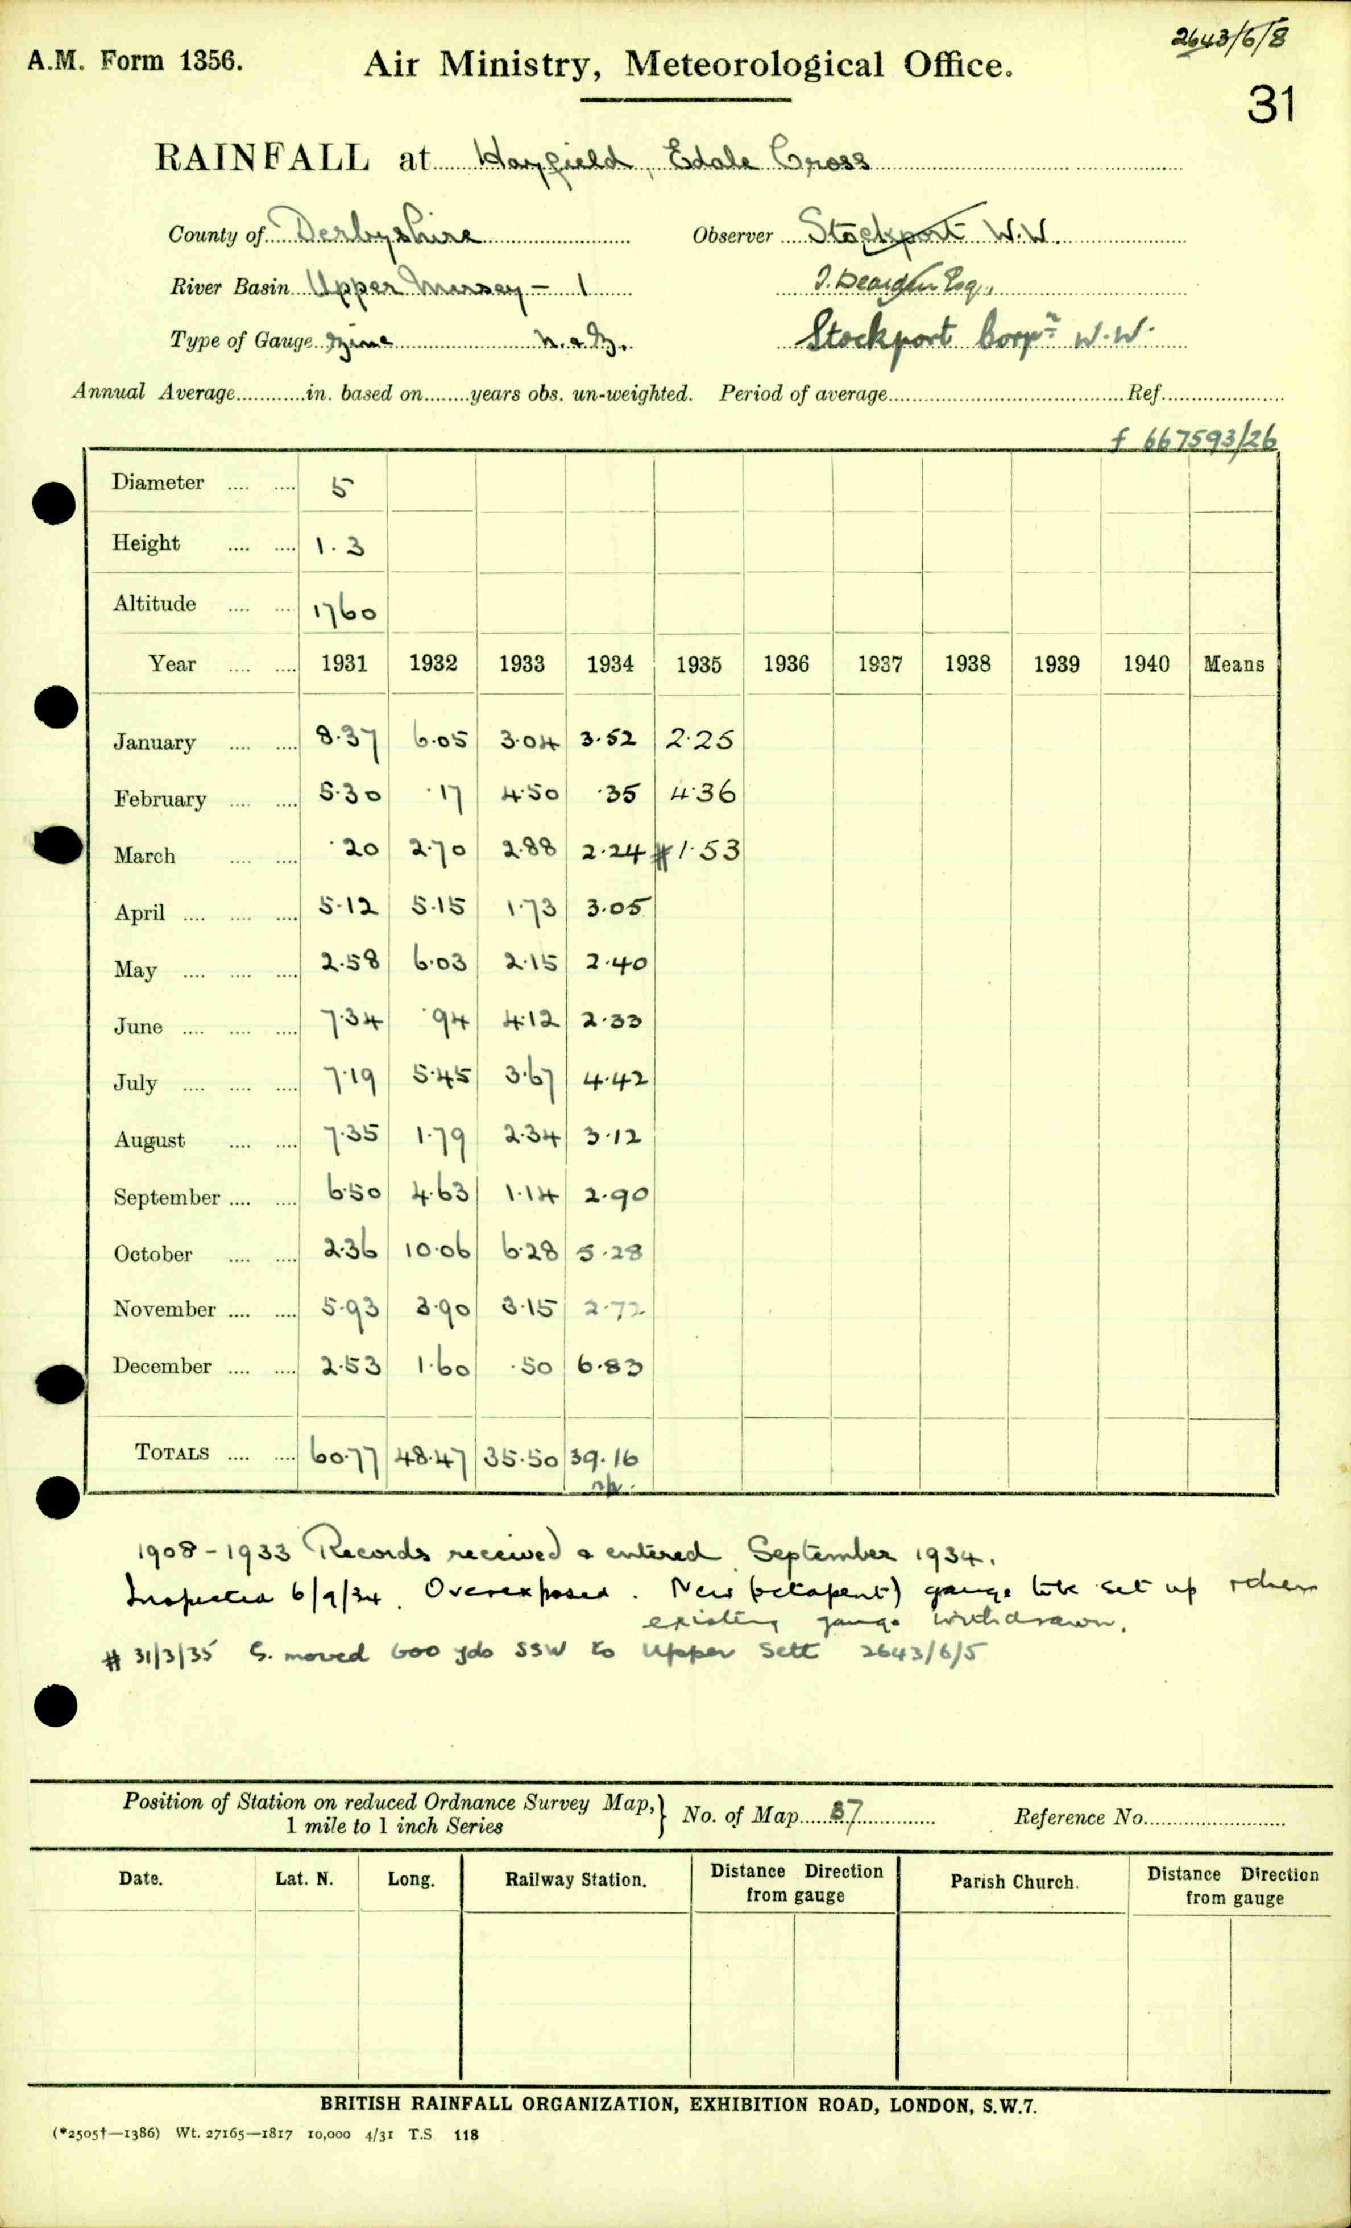 2643/6/8
A.M. Form 1356. Air Ministry, Meteorological Office.
31
RAINFALL at Hayfield, Edale Cross
County of Derbyshire Observer Stockport W.W.
River Basin Upper Mersey - 1 J. Dearden Esq.,
Type of Gauge N. & Z. Stockport Corpn W.W.
Annual Average............in. based on........years obs. un-weighted. Period of average........................................Ref.....................
f 667593/26
Diameter .... .... 5
Height .... .... 1.3
Altitude .... .... 1760
Year .... .... 1931 1932 1933 1934 1935 1936 1937 1938 1939 1940 Means
January .... .... 8.37 6.05 3.04 3.52 2.25
February .... .... 5.30 .17 4.50 .35 4.36
March .... .... .20 2.70 2.88 2.24 # 1.53
April .... .... .... 5.12 5.15 1.73 3.05
May .... .... .... 2.58 6.03 2.15 2.40
June .... .... .... 7.34 .94 4.12 2.33
July .... .... .... 7.19 5.45 3.67 4.42
August .... .... 7.35 1.79 2.34 3.12
September .... .... 6.50 4.63 1.14 2.90
October .... .... 2.36 10.06 6.28 5.28
November .... .... 5.93 3.90 3.15 2.72
December .... .... 2.53 1.60 .50 6.83
TOTALS .... .... 60.77 48.47 35.50 39.16
1908 - 1933 Records received & entered September 1934.
Inspected 6/9/34. Overexposed. New (octapent) gauge to be set up when
existing gauge withdrawn.
# 31/3/35 G. moved 600 yds SSW to Upper Sett 2643/6/5
Position of Station on reduced Ordnance Survey Map,} No. of Map 37 Reference No.
1 mile to 1 inch Series
Date. Lat. N. Long. Railway Station. Distance Direction from gauge Parish Church. Distance Direction from gauge
BRITISH RAINFALL ORGANIZATION, EXHIBITION ROAD, LONDON, S.W.7.
(*2505†—1386) Wt. 27165—1817 10,000 4/31 T.S 118